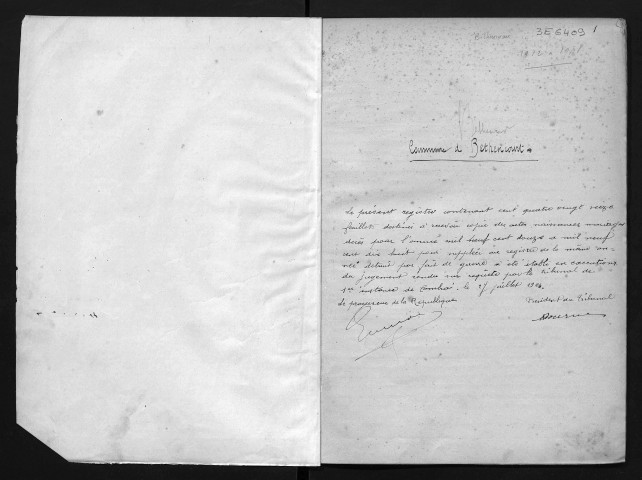 3E6409 1
Commune de Béthencourt
Le présent registre contenant cent quatre vingt seize
feuillets destiné à recevoir copie des actes naissances mariages
décès pour l'année mil neuf cent douze a mil neuf
cent dix huit pour suppléer au registre de la même
détruit par fait de guerre a été établi en exécution
du jugement rendu sur requête par le tribunal de
1re instance de Cambrai. le 17 juillet
Le procureur de la République
Président du Tribunal